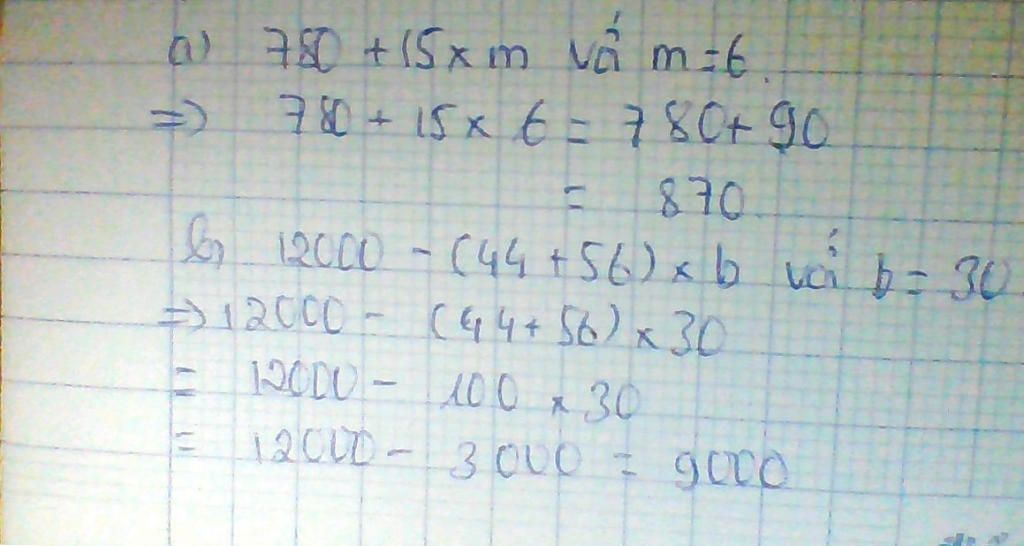 a) 780 + 15 x m với m = 6.
=> 780 + 15 x 6 = 780 + 90
= 870
b, 12000 - (44 + 56) x b với b = 30
=> 12000 - (44 + 56) x 30
= 12000 - 100 x 30
= 12000 - 3000 = 9000